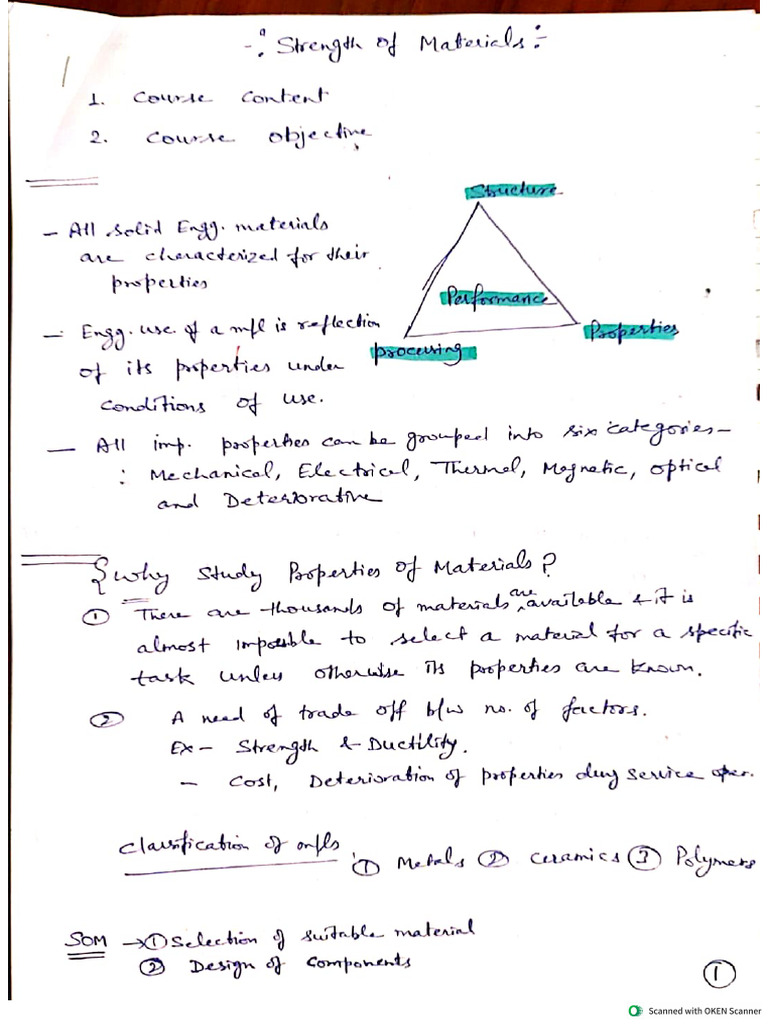 -: Strength of Materials :-
1. Course Content
2. Course objective
Structure
Performance
Properties
Processing
- All solid Engg. materials
are characterized for their
properties
- Engg. use of a mtl is reflection
of its properties under
conditions of use.
- All imp. properties can be grouped into six categories-
: Mechanical, Electrical, Thermal, Magnetic, Optical
and Deteriorative
{ Why Study Properties of Materials?
① There are thousands of materials are available & it is
almost impossible to select a material for a specific
task unless otherwise its properties are known.
② A need of trade off b/w no. of factors.
Ex- Strength & Ductility.
- Cost, Deterioration of properties during service oper.
Classification of mtls : ① Metals ② Ceramics ③ Polymers
SOM → ① Selection of suitable material
② Design of Components
①
Scanned with OKEN Scanner